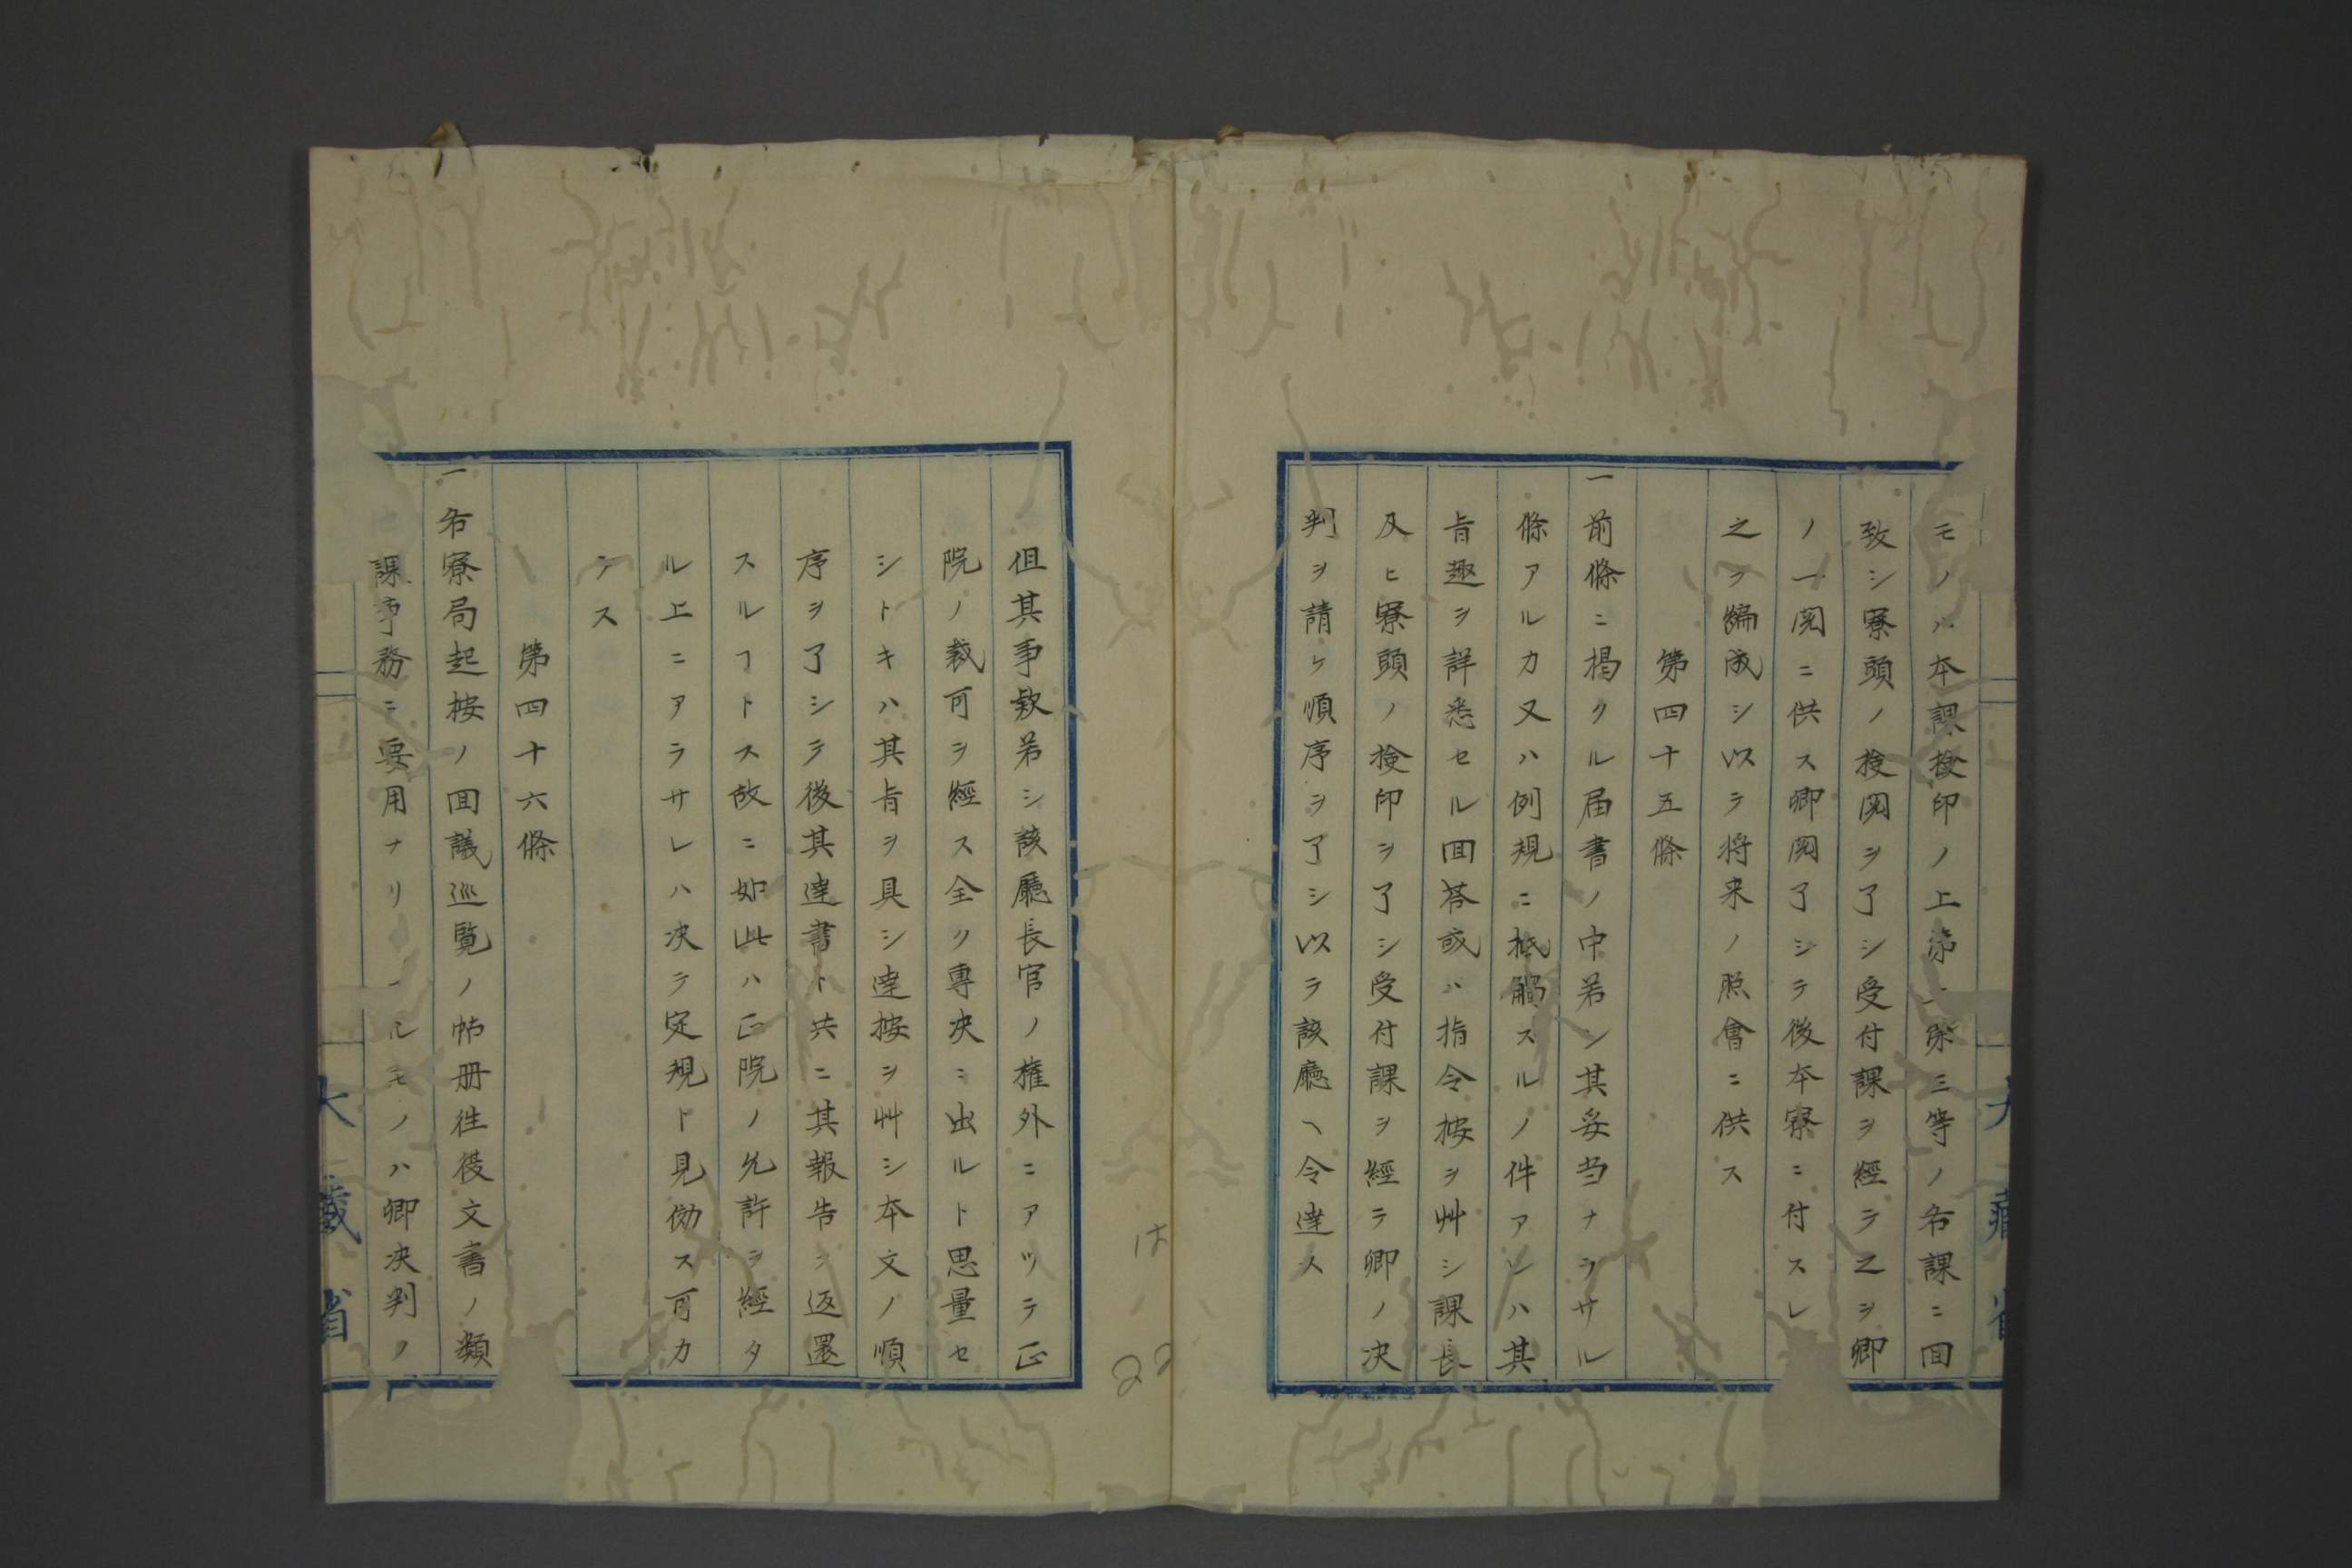 モノハ本課檢印ノ上第一第三等ノ各課ニ回
致シ寮頭ノ檢閲ヲ了シ受付課ヲ經テ之ヲ卿
ノ一閲ニ供ス卿閲了シテ後本寮ニ付スレ
之ヲ編成シ以テ将来ノ照會ニ供ス
第四十五條
一前條ニ掲クル届書ノ中若シ其妥当ナラサル
條アルカ又ハ例規ニ抵觸スルノ件アレハ其
旨趣ヲ詳悉セル回答或ハ指令按ヲ艸シ課長
及ヒ寮頭ノ檢印ヲ了シ受付課ヲ經テ卿ノ决
判ヲ請ケ順序ヲ了シ以テ該廳ヘ令達ス
但其事欵若シ該廳長官ノ權外ニアツテ正
院ノ裁可ヲ經ス全ク專决ニ出ルト思量セ
シトキハ其旨ヲ具シ達按ヲ艸シ本文ノ順
序ヲ了シテ後其達書ト共ニ其報告ヲ返還
スルヿトス故ニ如此ハ正院ノ允許ヲ經タ
ル上ニアラサレハ决テ定規ト見傚ス可カ
ラス
第四十六條
一各寮局起按ノ回議巡覧ノ帖册往復文書ノ類
課事務ニ要用ナリ ルモノハ卿决判ノ
大藏省
大藏省
22